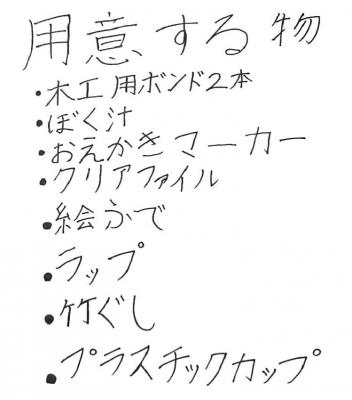 用意する物
・木工用ボンド2本
・ぼく汁
・おえかきマーカー
・クリアファイル
・絵ふで
・ラップ
・竹ぐし
・プラスチックカップ